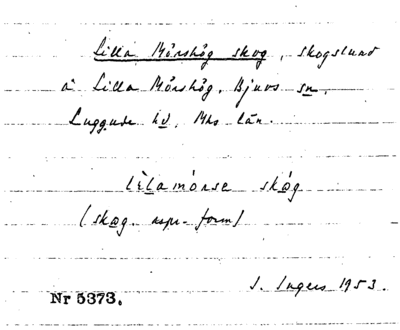 Lilla Mörshög skog, skogslund
å Lilla Mörshög, Bjuvs sn.
Luggude hd, Mhs län.
lìlamȯrse skǻg
(skog rspr-form)
I. Ingers 1953.
Nr 5373.